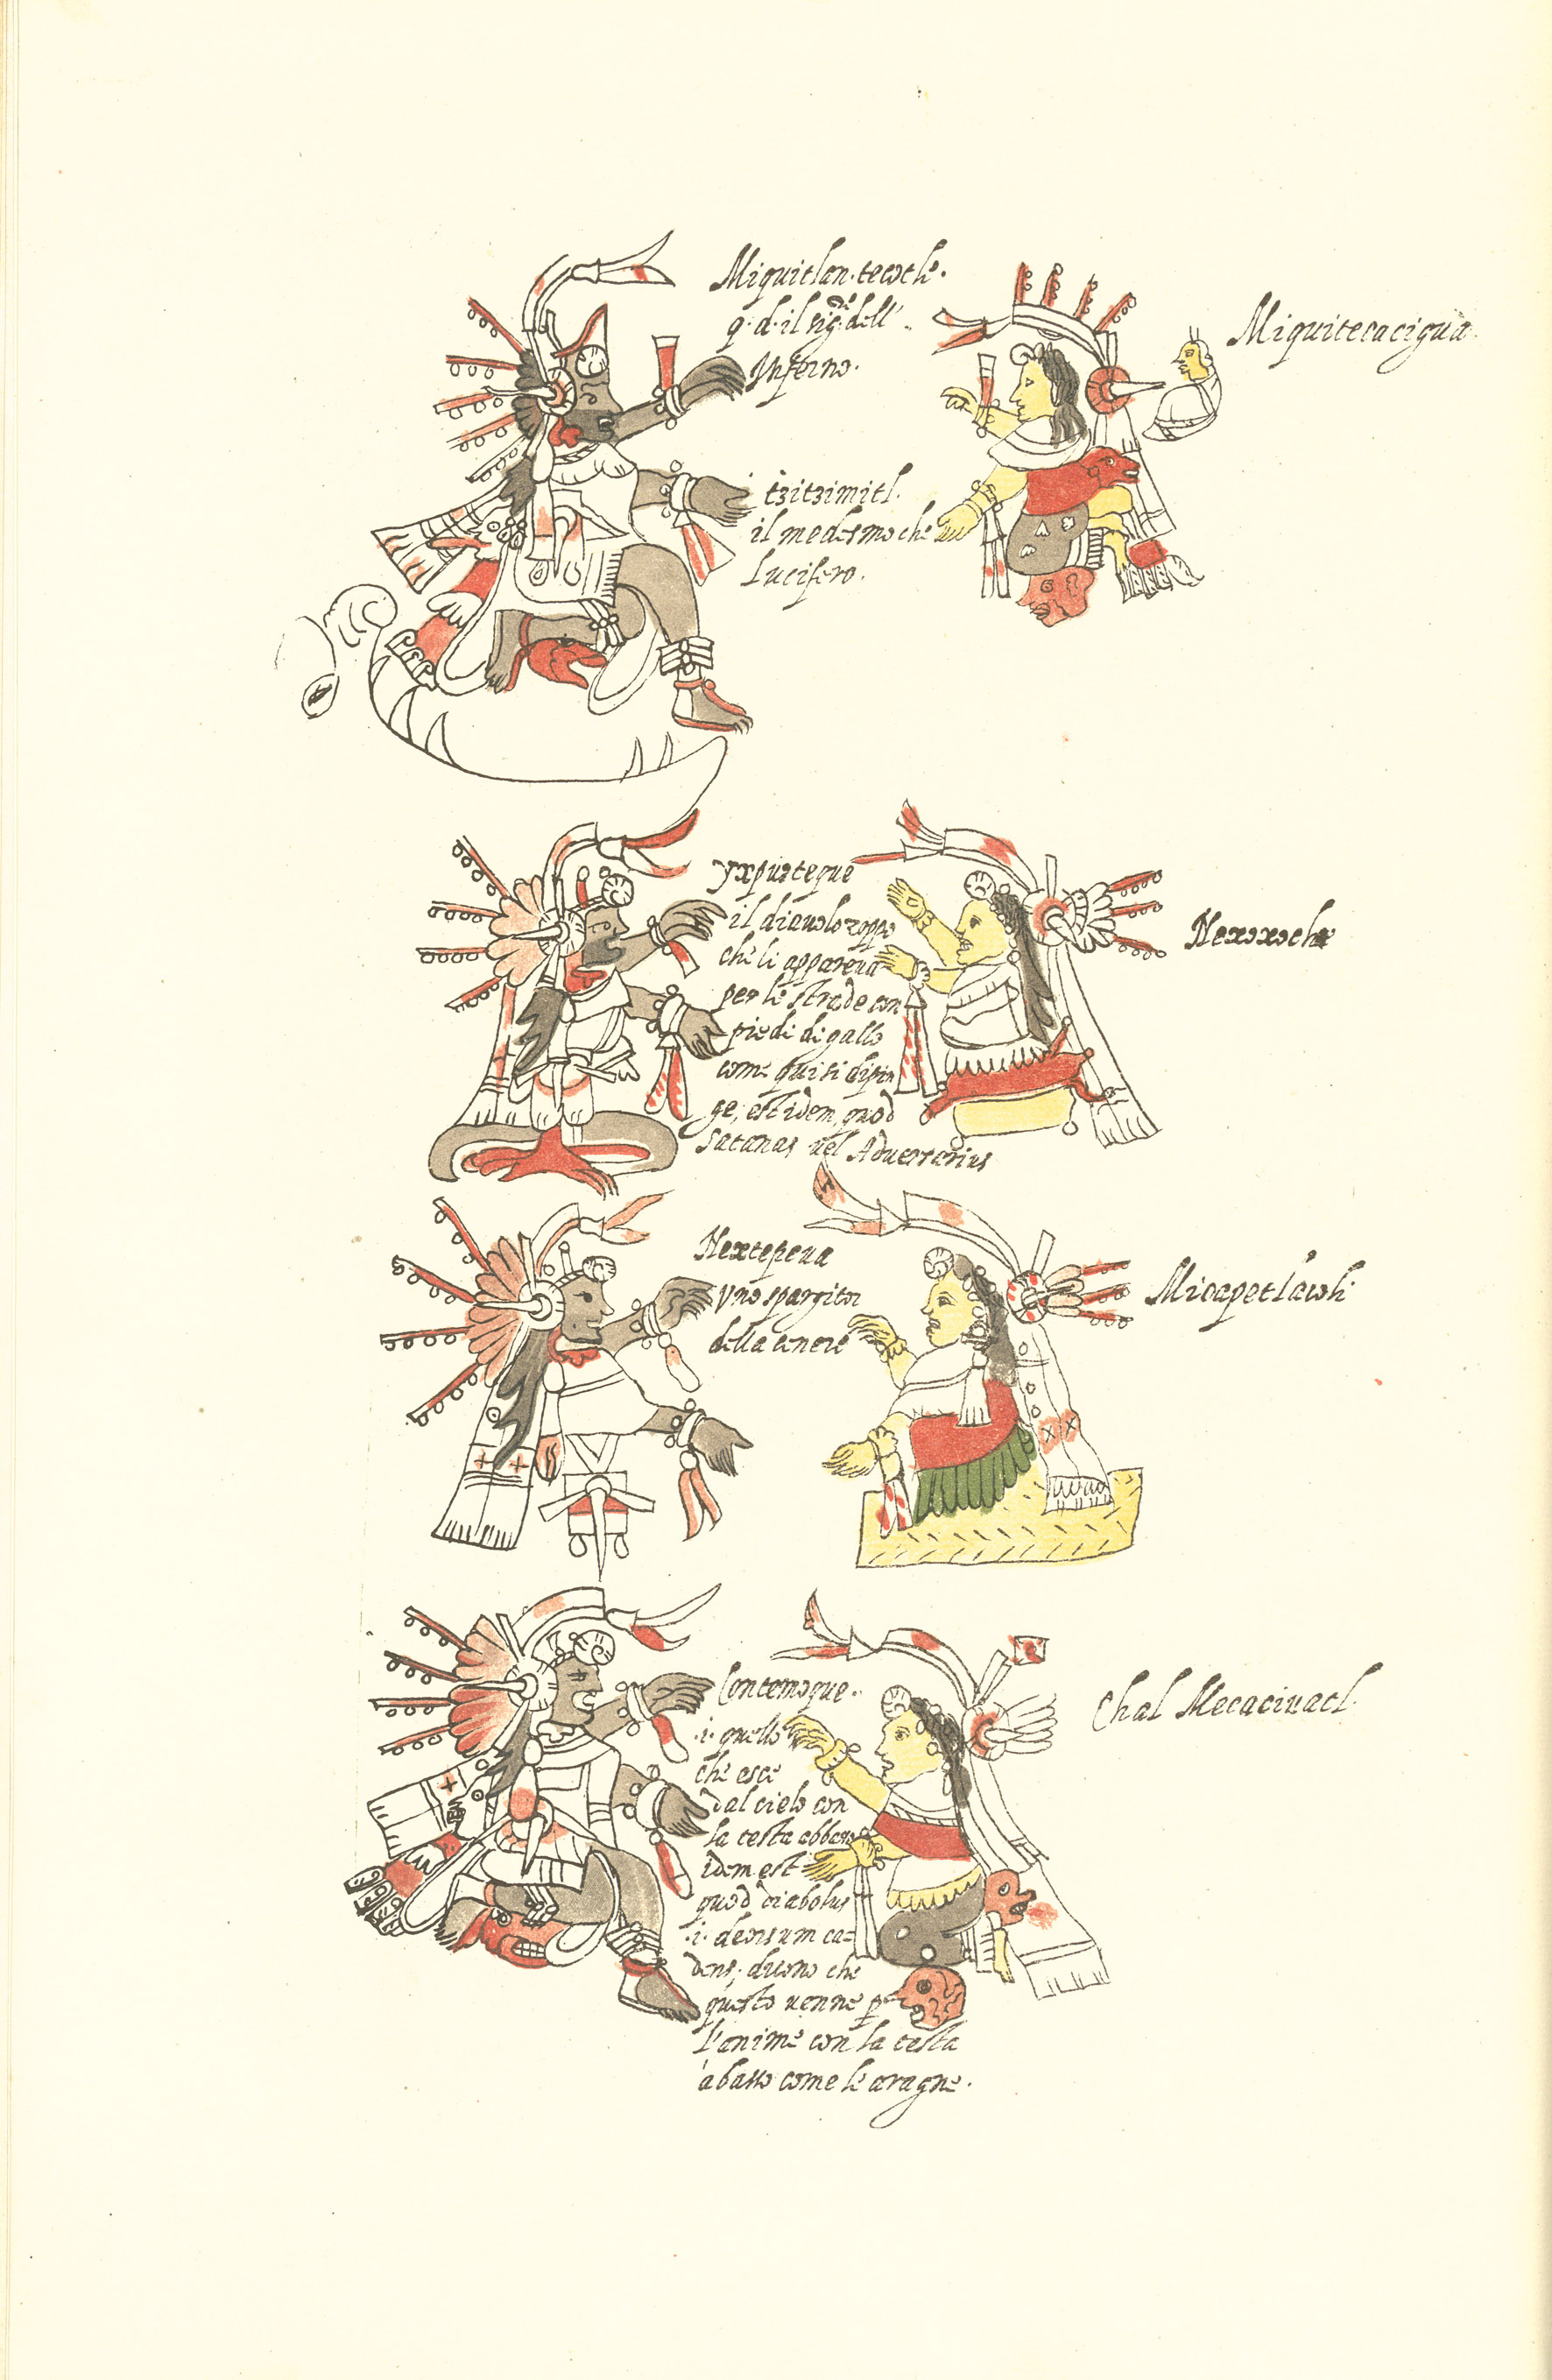 Miquitlan.tecotli.
q. d. il sig.re dell'
Inferno.
Miquitecacigua
tzitzimitl.
il medesmo che
Lucifero.
yxpuzteque
il diauolo zoppo
che li appareua
per le strade con
piedi di gallo
come qui si dipin
ge, est idem, quod
satanas vel Aduersarius
Nexoxoche
Nextepeua
Vno spargitor
della cenere
Micapetlacoli
Contemoque.
.i. quello
che esce
dal cielo con
la testa abbasso
idem est
quod diabolus
.i. deorsum ca-
dens; dicono che
questo uenne p
l'anime con la testa
abasso come le aragne.
Chal Mecaciuatl.